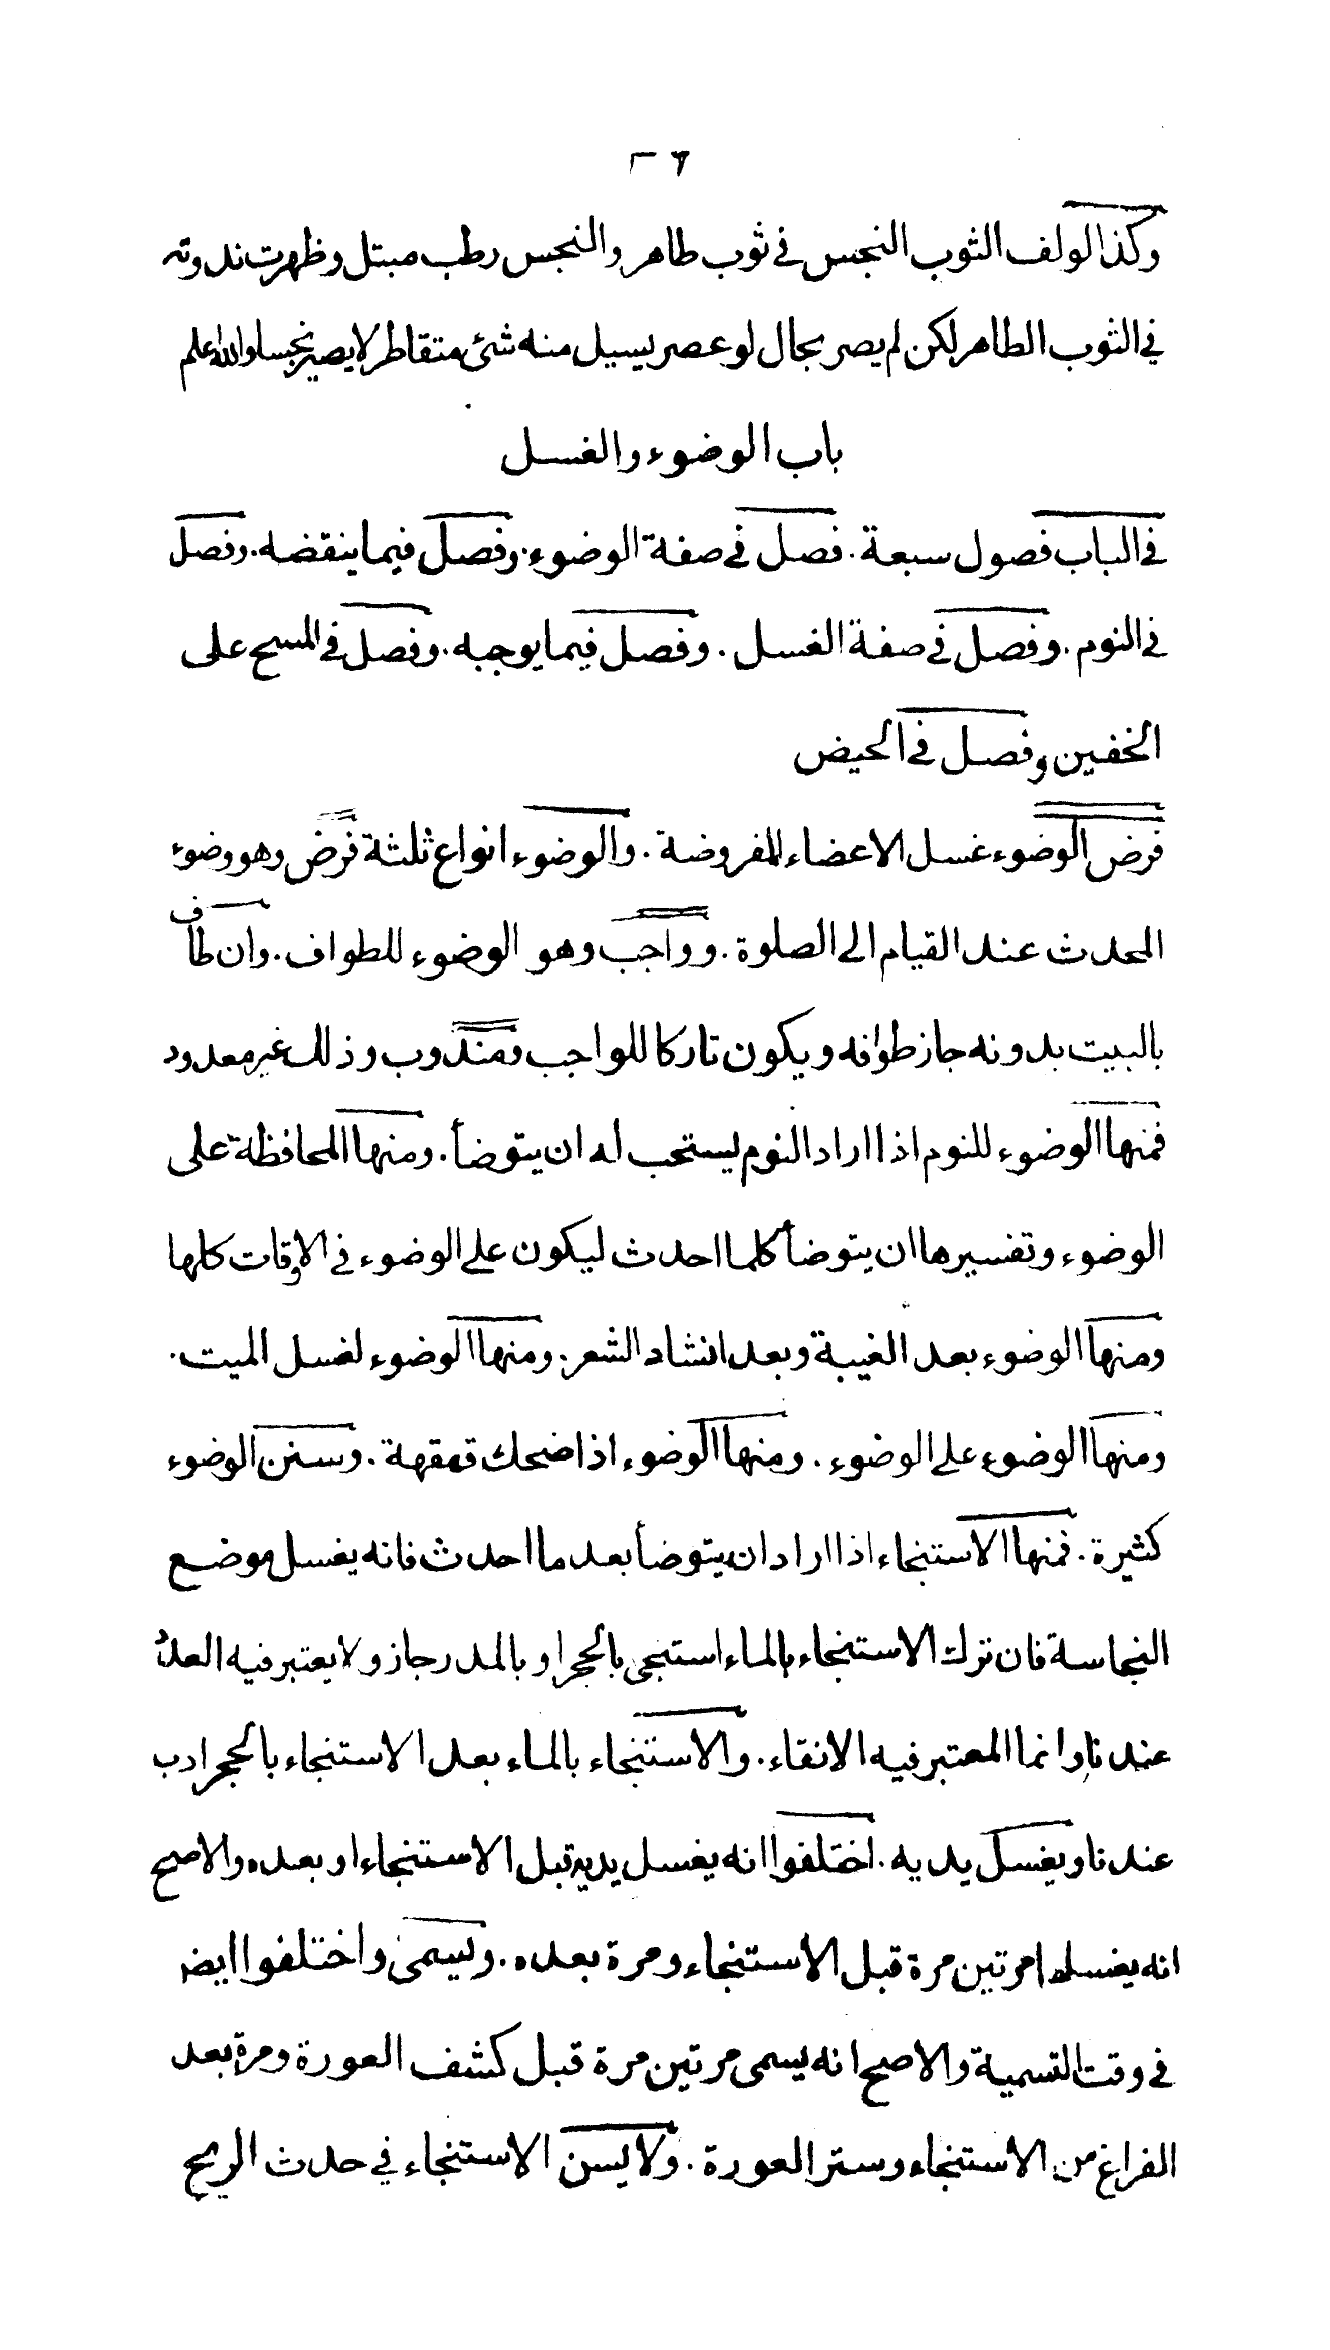 ٢٦
وكذا لو لف الثوب النجس في ثوب طاهر والنجس رطب مبتل وظهرت ندوته
في الثوب الطاهر لكن لم يصر بحال لو عصر يسيل منه شئ متقاطر لا يصير نجسا والله اعلم
باب الوضوء والغسل
في الباب فصول سبعة. فصل في صفة الوضوء. وفصل فيما ينقضه. وفصل
في النوم. وفصل في صفة الغسل. وفصل فيما يوجبه. وفصل في المسح على
الخفين وفصل في الحيض
فرض الوضوء غسل الاعضاء المفروضة. والوضوء انواع ثلثة فرض وهو وضوء
المحدث عند القيام الى الصلوة. وواجب وهو الوضوء للطواف. وان طاف
بالبيت بدونه جاز طوافه ويكون تاركا للواجب ومندوب وذلك غير معدود
فمنها الوضوء للنوم اذا اراد النوم يستحب له ان يتوضأ. ومنها المحافظة على
الوضوء وتفسيرها ان يتوضأ كلما احدث ليكون على الوضوء في الاوقات كلها
ومنها الوضوء بعد الغيبة وبعد انشاد الشعر. ومنها الوضوء لغسل الميت.
ومنها الوضوء على الوضوء. ومنها الوضوء اذا ضحك قهقهة. وسنن الوضوء
كثيرة. فمنها الاستنجاء اذا اراد ان يتوضأ بعد ما احدث فانه يغسل موضع
النجاسة فان ترك الاستنجاء بالماء استنجى بالحجر او بالمدر جاز ولا يعتبر فيه العدد
عندنا وانما المعتبر فيه الانقاء. والاستنجاء بالماء بعد الاستنجاء بالحجر ادب
عندنا ويغسل يديه. اختلفوا انه يغسل يديه قبل الاستنجاء او بعده والاصح
انه يغسلهما مرتين مرة قبل الاستنجاء ومرة بعده. ويسمى واختلفوا ايضا
في وقت التسمية والاصح انه يسمى مرتين مرة قبل كشف العورة ومرة بعد
الفراغ من الاستنجاء وستر العورة. ولا يسن الاستنجاء في حدث الريح